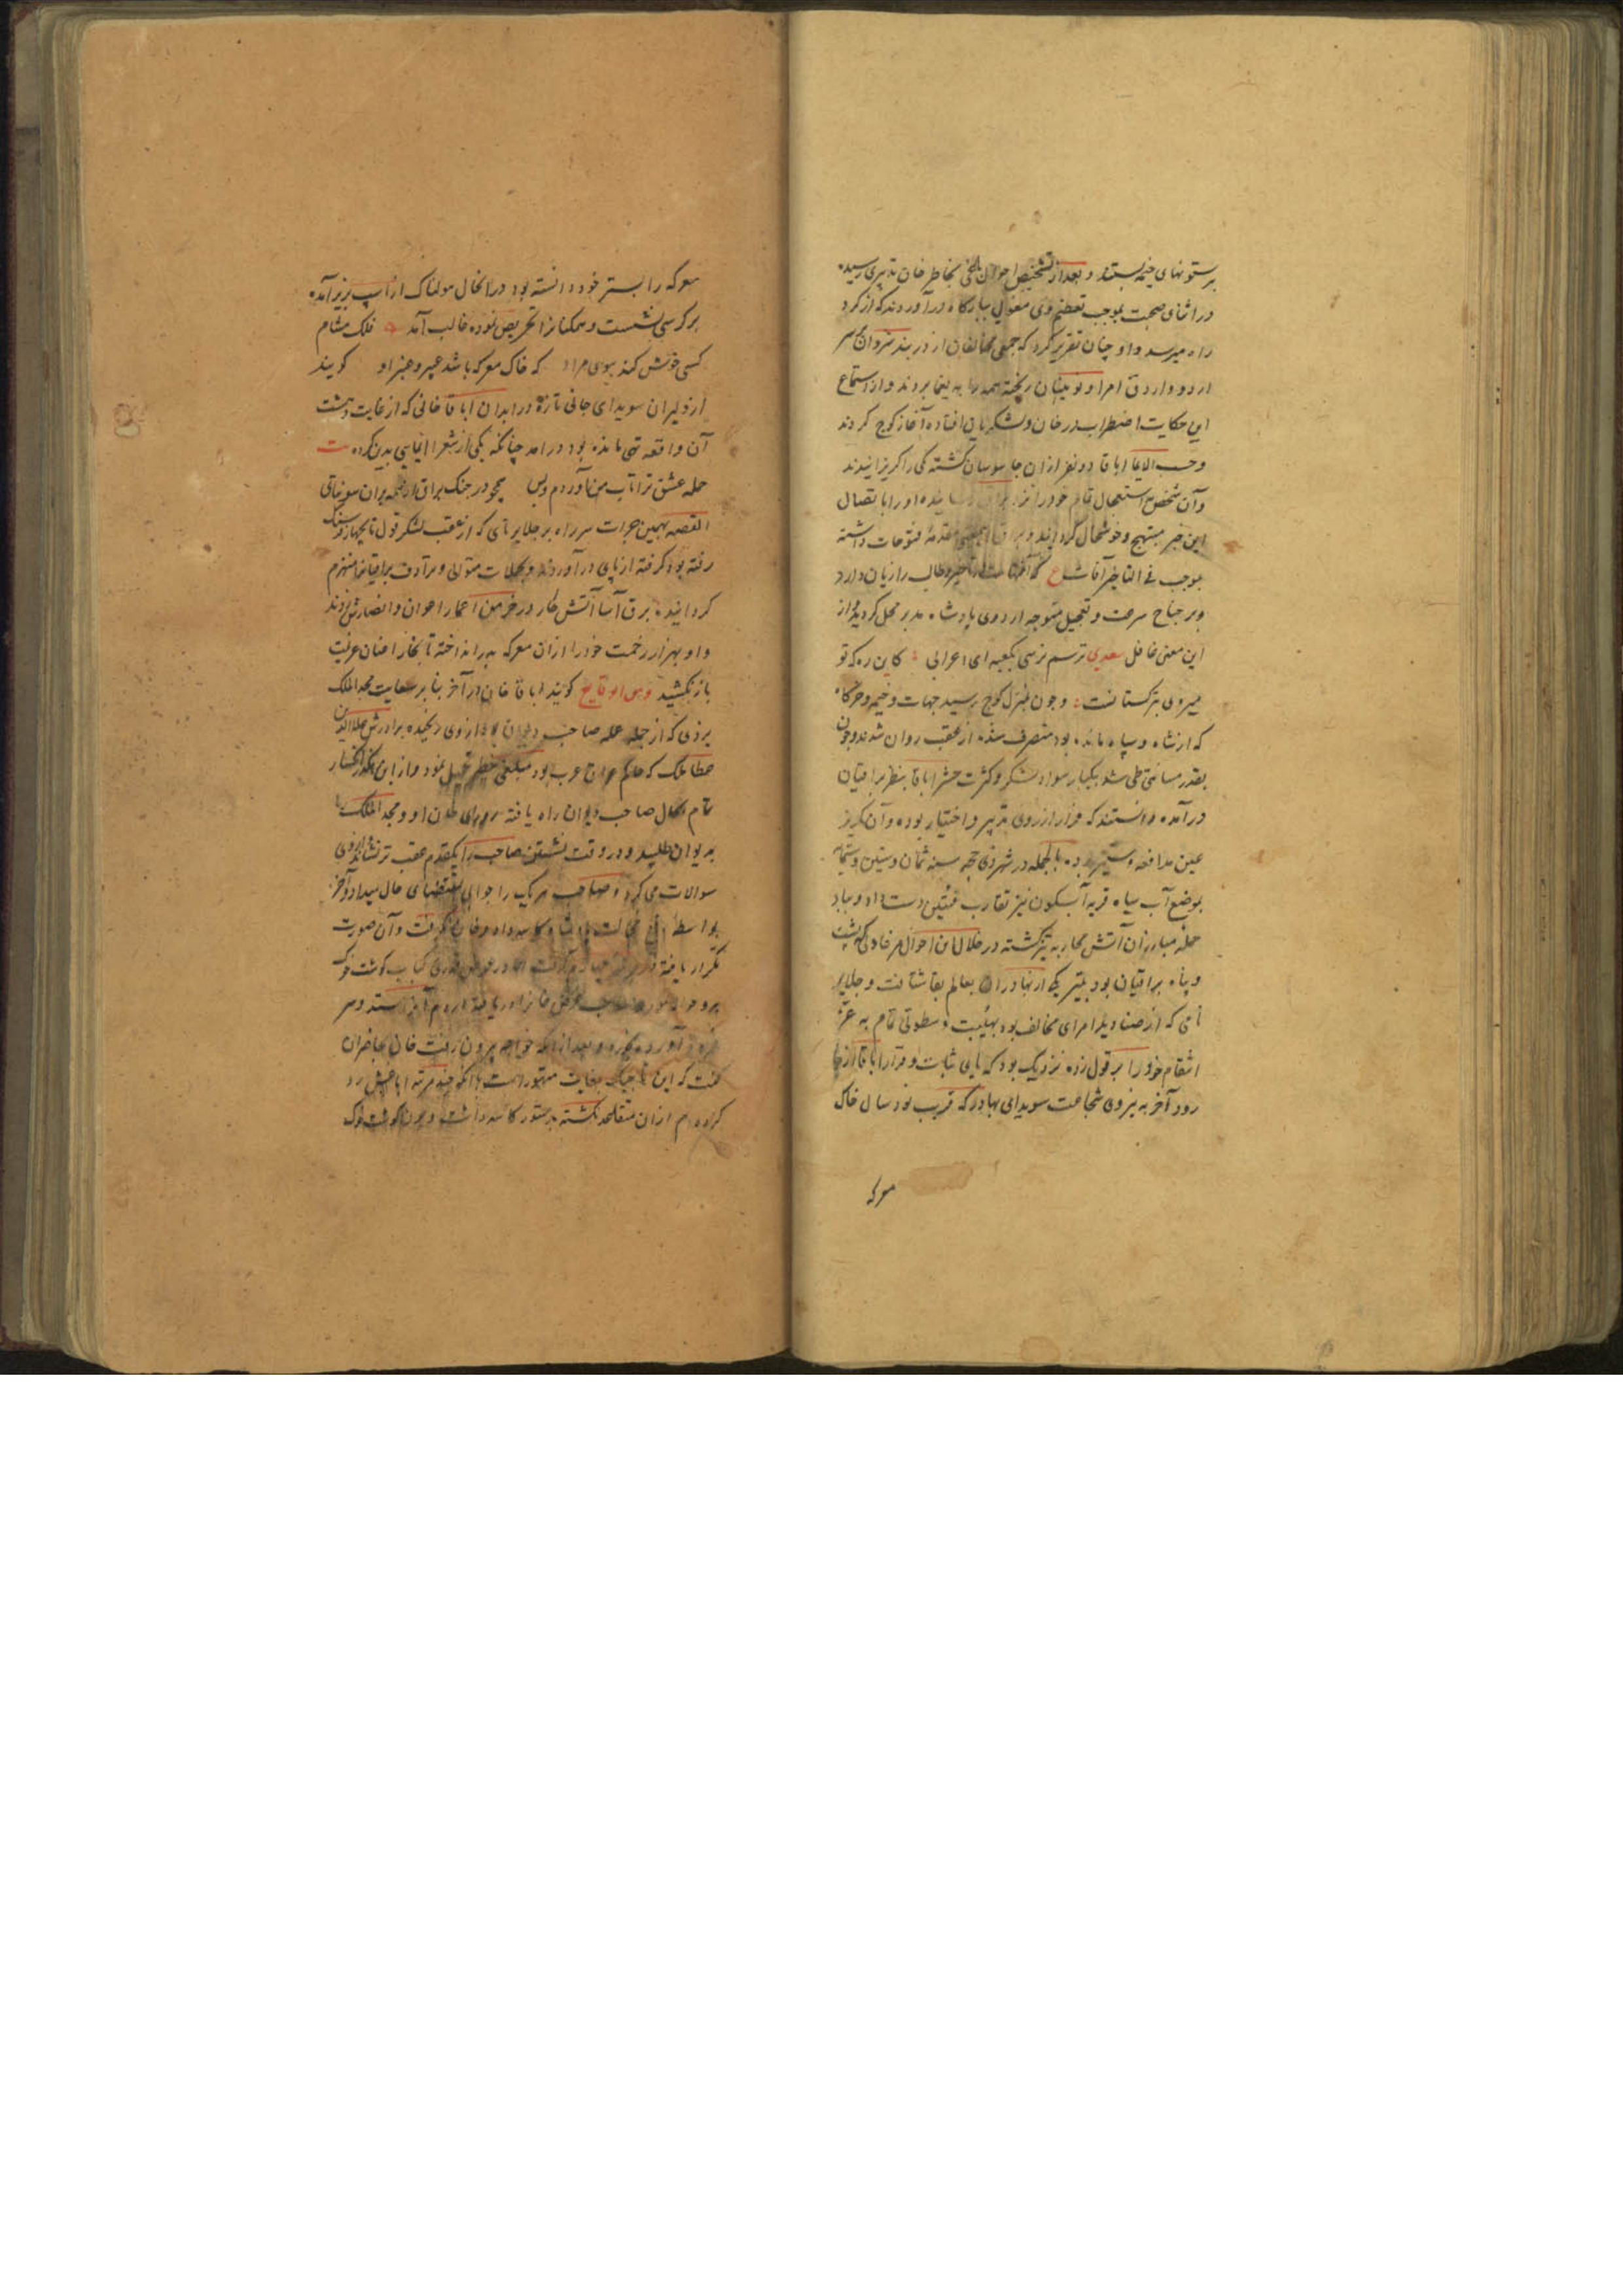 برستونهای خیمه بستند و بعد از تشخیص احوال بخاطر خان تدبیری رسیده
در اثنای صحبت بموجب تعظیم وی مغولی ببارگاه درآوردند که از گرد
راه میرسد و او چنان تقریر کرد که جمعی مخالفان از دربند شروان بر سر
اردو و اردوی امرا و نویینان ریخته همه را به یغما بردند و از استماع
این حکایت اضطراب در خان و لشکریان افتاده آغاز کوچ کردند
و حسب الایما اباقا دو نفر از آن جاسوسان کشته یکی را گریزانیدند
و آن شخص باستعجال تمام خود را نزد براق رسانیده او را باتصال
این خبر مبتهج و خوشحال گردانید و براق مقدمه فتوحات دانسته
بموجب فی التاخیر آفات ع که آفتهاست در تاخیر و طالب را زیان دارد
و بر جناح سرعت و تعجیل متوجه اردوی پادشاه مدبر محل گردید و از
این معنی غافل سعدی ترسم نرسی بکعبه ای اعرابی کاین ره که تو
میروی بترکستانست و چون بمنزل کوچ رسید جهات و خیمه و خرگاه
که از شاه و سپاه مانده بود متصرف شده از عقب روان شدند و چون
بقدر مسافتی طی شد بیکبار سواد لشکر و کثرت حشر اباقا بنظر براقیان
درآمده دانستند که فرار از روی تدبیر و اختیار بوده و آن گریز
عین مدافعه و ستیز بوده بالجمله در شهر ذی حجه سنه ثمان و ستین و ستمایه
بموضع آب سیاه قریه آبسکون نیز تقارب فئتین دست داد و بباد
حمله مبارزان آتش محاربه تیز گشته در خلال این احوال مرغاول که پشت
و پناه براقیان بود بتیر یکی از بهادران بعالم بقا شتافت و جلایر
نامی که از صنادید امرای مخالف بود بهئیبت و سطوتی تمام به عزم
انتقام خود را بر قول زده نزدیک بود که پای ثبات و قرار اباقا از جا
رود آخر به نیروی شجاعت سوبدای بهادر که قریب نود سال خاک
معرکه
معرکه را بستر خود دانسته بود در انحال هولناک از اسپ بزیر آمده
بر کرسی نشست و همکنانرا تحریص نموده غالب آمد فلک مشام
کسی خوش کند ببوی مراد که خاک معرکه باشد عبیر و عنبر او گویند
از دلیران سوبدای جانی تازه در ابدان اباقا خانی که از غایت دهشت
آن واقعه تهی مانده بود درآمد چنانکه یکی از شعرا ایمایی بدین کرده ت
حمله عشق ترا تاب من آوردم و بس همچو در جنگ براق از همه یران سونتای
القصه بهمین جرات سر راه بر جلایر تای که از عقب لشکر قول تا چهار فرسنگ
رفته بود گرفته از پای درآوردند و بحملات متوالی و مترادف براقیانرا منهزم
گردانیده برق آسا آتش فنا در خرمن اعمار اعوان و انصارش زدند
و او بهزار زحمت خود را از آن معرکه بدر انداخته تا بخارا عنان عزیمت
باز نکشید و من الوقایع گویند اباقا خان در آخر بنا بر سعایت مجد الملک
یزدی که از جمله عمله صاحب دیوان بود از وی رنجیده برادرش علاالدین
عطا ملک که حاکم عراق عرب بود مبلغی خطیر تحمیل نمود و از این ممر انکسار
تمام بحال صاحب دیوان راه یافته روزی خان او و مجد الملک را
بدیوان طلبید و در وقت نشستن صاحب را یکقدم عقب تر نشاند از وی
سوالات می کرد و صاحب هر یک را جوابی بمقتضای حال میداد و آخر
بواسطه دفع خجالت پادشاه کاسه داد و خان نگرفت و آن صورت
تکرار یافته در مرتبه چهارم گرفت اما در عوض قدری کباب گوشت خوک
آورده بخورد و بعد از آنکه خواجه بیرون رفت خان بحاضران
گفت که این تاجیک بغایت متهور است با آنکه چند مرتبه ایاغش رد
کرده ام از آن متقلد نگشته بدستور کاسه داشت و چون گوشت خوک